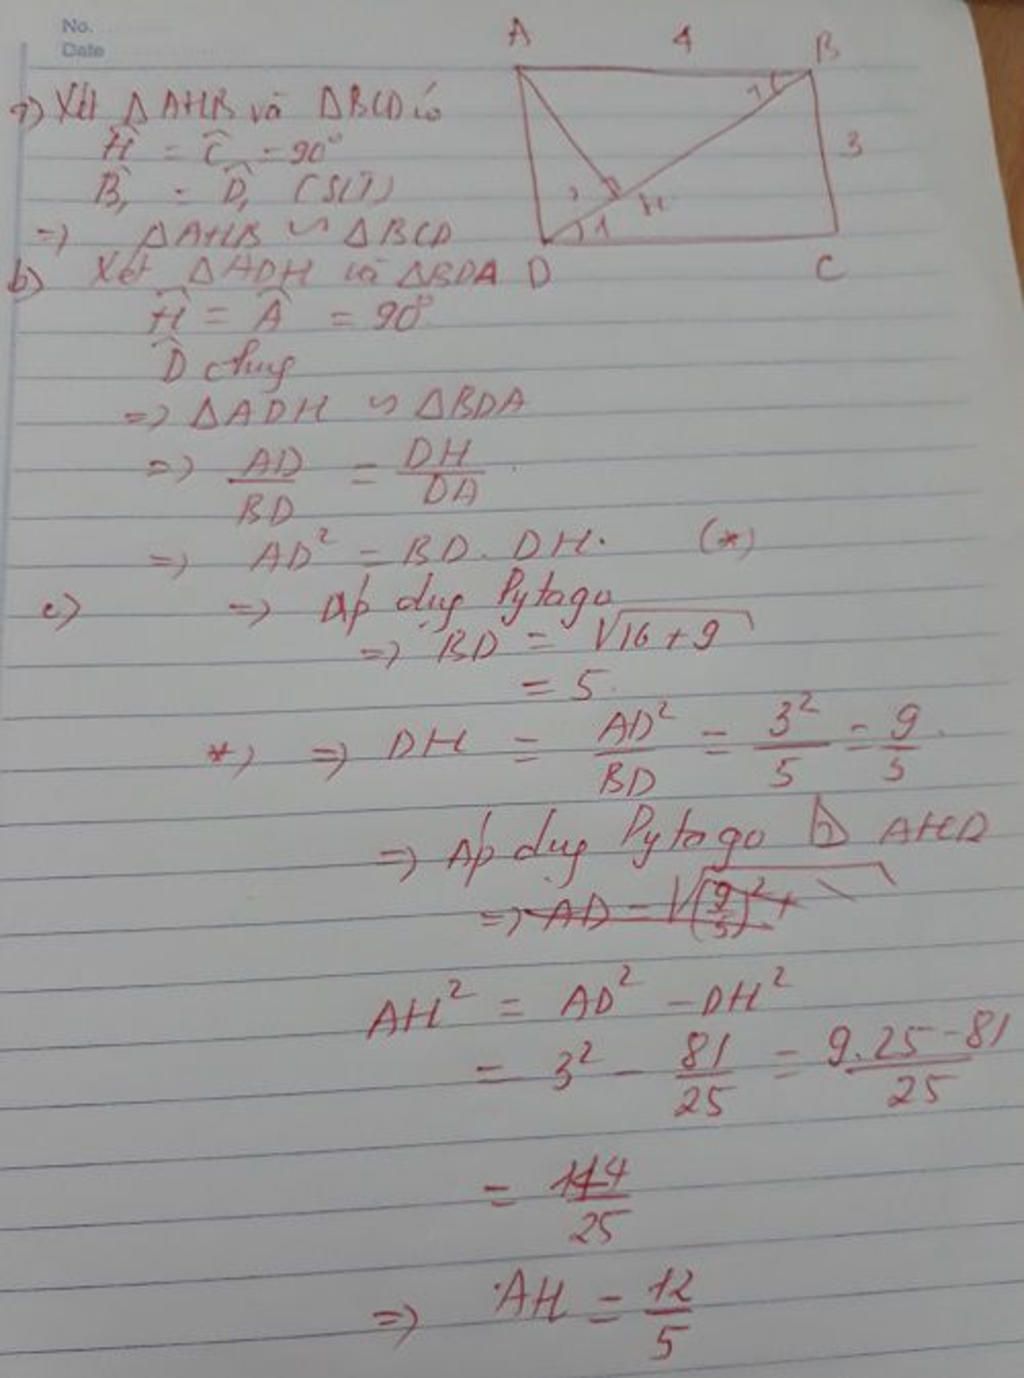 No.
Date
A 4 B
3
H
D C
a) Xét ΔAHB và ΔBCD có
Ĥ = Ĉ = 90°
B̂₁ = D̂₁ (SLT)
=> ΔAHB ∽ ΔBCD
b) Xét ΔADH và ΔBDA
Ĥ = Â = 90°
D̂ chung
=> ΔADH ∽ ΔBDA
=> AD/BD = DH/DA
=> AD² = BD . DH. (*)
c) => áp dụg Pytago
=> BD = √16 + 9
= 5.
*) => DH = AD²/BD = 3²/5 = 9/5
=> Áp dụg Pytago AHD
=> AD = √(9/5)² +
AH² = AD² - DH²
= 3² - 81/25 = 9.25-81/25
= 144/25
=> AH = 12/5